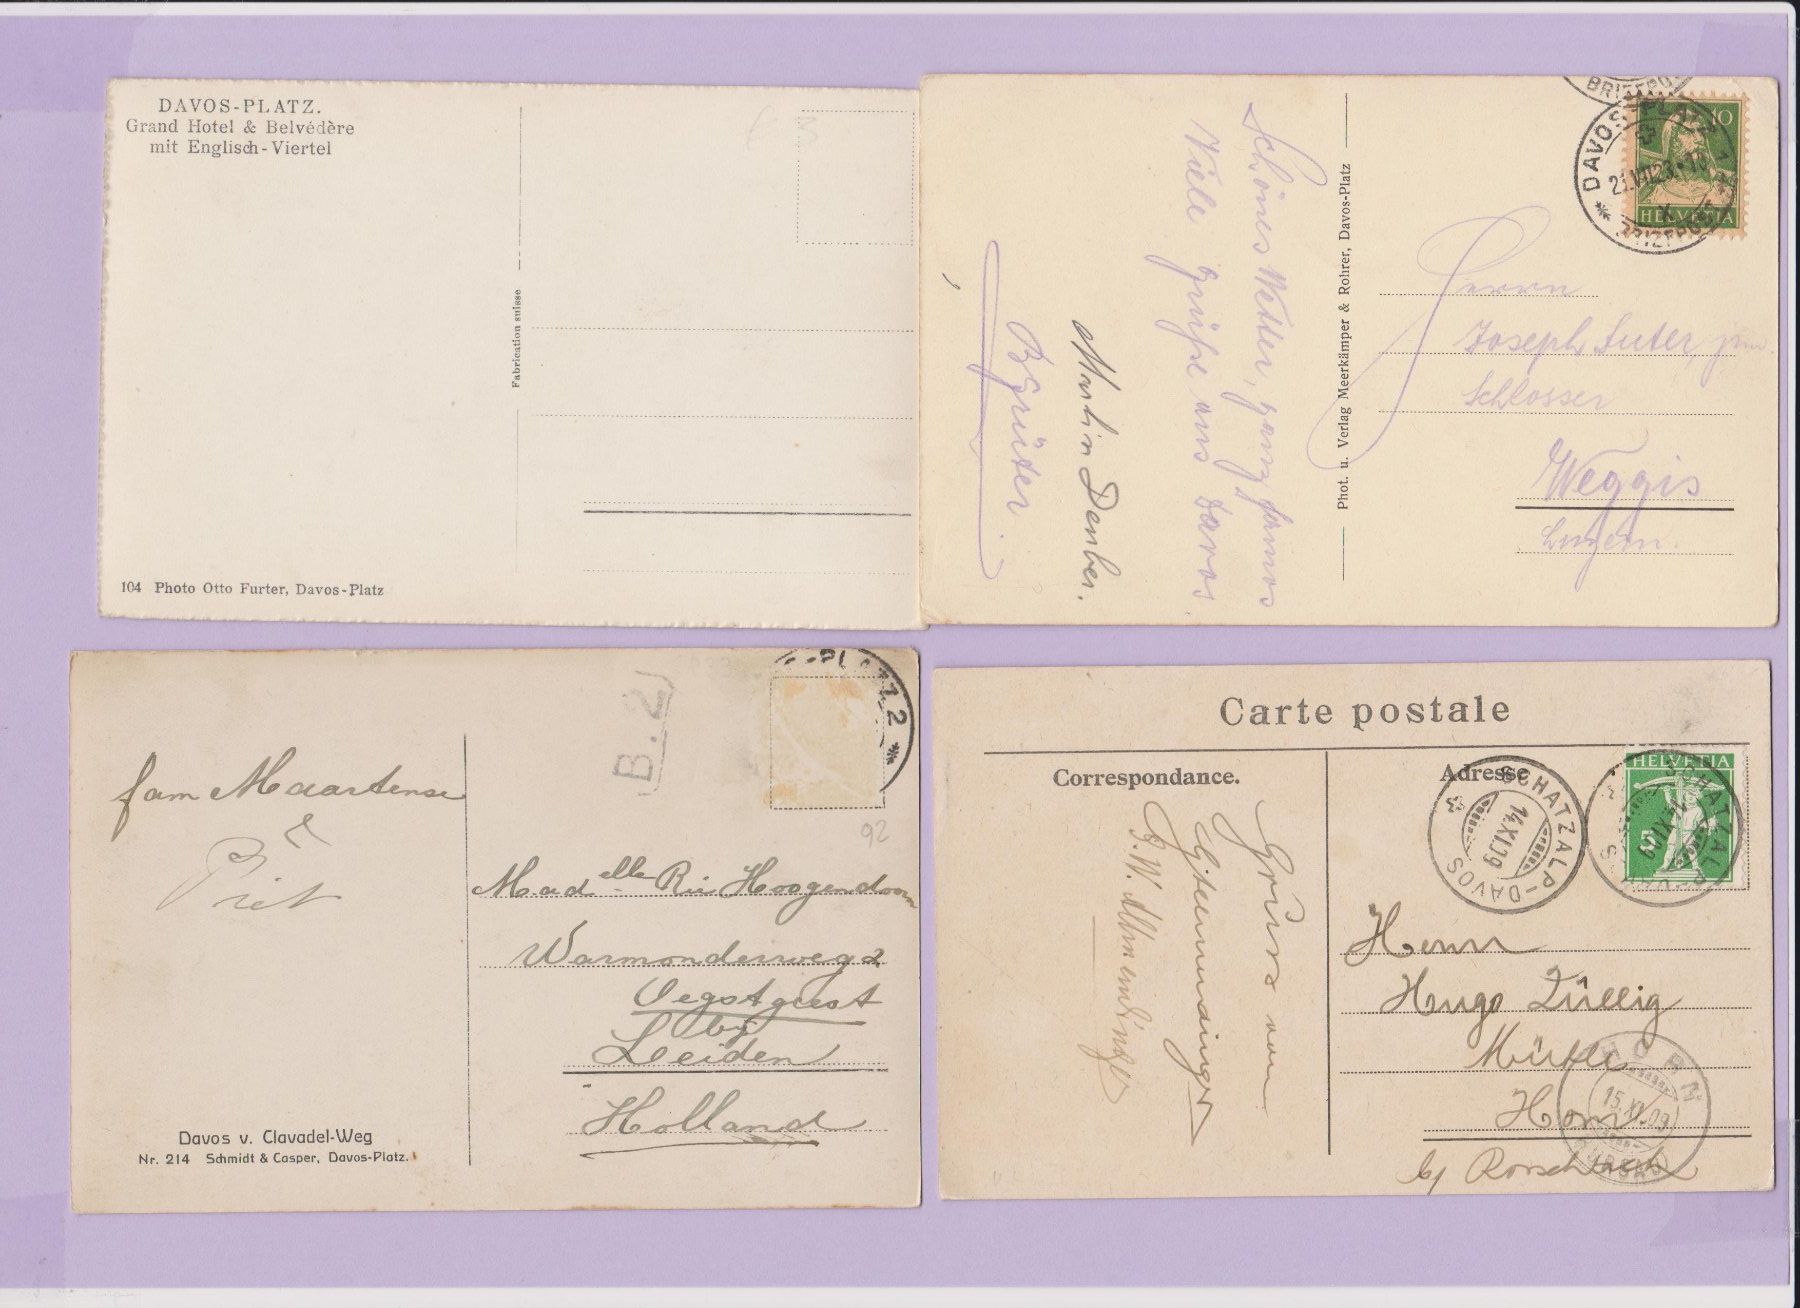 DAVOS-PLATZ.
Grand Hotel & Belvédère
mit Englisch-Viertel
Fabrication suisse
104 Photo Otto Furter, Davos-Platz
Schönes Wetter, ganz famos
Viele Grüsse aus Davos
Martin
Phot. u. Verlag Meerkämper & Rohrer, Davos-Platz
DAVOS
BRIEFPOST
10
HELVETIA
Herrn
Joseph Suter, jun
Schlosser
Weggis
Luzern.
fam Maartense
Piet
B.2
PLATZ 2
92
Mad elle Rie Hoogendoorn
Warmonderweg 2
Oegstgeest
by
Leiden
Holland
Davos v. Clavadel-Weg
Nr. 214 Schmidt & Casper, Davos-Platz.
Carte postale
Correspondance.
Adresse
SCHATZALP-DAVOS
14.XI.09
SCHATZALP-DAVOS
14.XI.09
HELVETIA
5
Gruss vom
Herrn
Hugo Züllig
Mühle
Horn
by Rorschach
HORN
15.XI.09